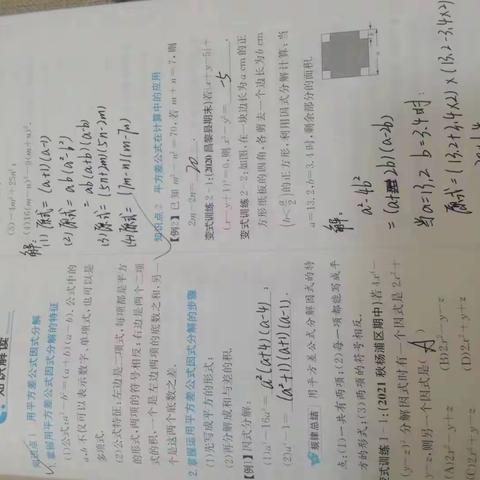 知识解读
知识点1 用平方差公式因式分解
1.掌握用平方差公式因式分解的特征
(1)公式:a²-b²=(a+b)(a-b),公式中的
a,b不仅可以表示数字、单项式,也可以是
多项式.
(2)公式特征:左边是二项式,每项都是平方
的形式,两项的符号相反;右边是两个二项
式的积,一个是左边两项的底数之和,另一
个是这两个底数之差.
2.掌握运用平方差公式因式分解的步骤
(1)先写成平方的形式;
(2)再分解成和与差的积.
【例1】因式分解:
(1)a⁴-16a²= a²(a+4)(a-4) ;
(2)a⁴-1= (a²+1)(a+1)(a-1) .
规律总结 用平方差公式分解因式的特
点:(1)一共有两项;(2)每一项都能写成平
方的形式;(3)两项的符号相反.
变式训练1-1:(2021秋杨浦区期中)若4x²-
(y-z)²分解因式时有一个因式是2x+
y-z,则另一个因式是( A )
(A)2x-y+z (B)2x-y-z
(C)2x+y-z (D)2x+y+z
(4)16(m-n)²-9(m+n)².
解:(1)原式=(a+1)(a-1)
(2)原式=ab(a²-b²)
=ab(a+b)(a-b)
(3)原式=(5n+2m)(5n-2m)
(4)原式=(7m-n)(m-7n)
知识点2 平方差公式在计算中的应用
【例2】已知m²-n²=70,若m+n=7,则
2m-2n= 20 .
变式训练2-1:(2020昌黎县期末)若|x+y-5|+
(x-y+1)²=0,则x²-y²= -5 .
变式训练2-2:如图,在一块边长为a cm的正
方形纸板的四角,各剪去一个边长为b cm
(b<a/2)的正方形,利用因式分解计算:当
a=13.2,b=3.4时,剩余部分的面积.
解:a²-4b²
=(a+2b)(a-2b)
当a=13.2 b=3.4时:
原式=(13.2+3.4×2)×(13.2-3.4×2)